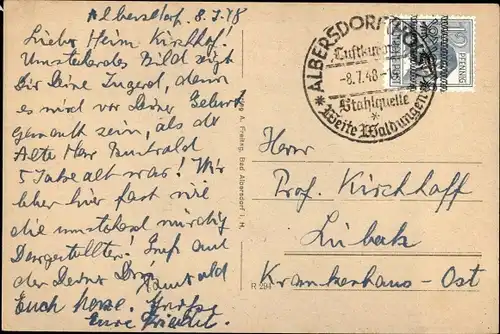 Albersdorf. 8.7.48
Lieber Heim Kirchhof!
Umstehendes Bild zeigt
Dir Deine Jugend, denn
es wird vor Deiner Geburt
gemacht sein, als der
Alte Herr
5 Jahre alt war! Wir
leben hier fast wie
die umstehend
Dargestellten! Gruß auf
der Deine
Euch herzl. Grüße
Eure
A. Freitag, Bad Albersdorf i. H.
R 294
ALBERSDORF (HOLST)
Luftkurort
-8.7.48-
Stahlquelle
Weite Waldungen
PFENNIG
Herrn
Prof. Kirchhoff
Lübeck
Krankenhaus-Ost